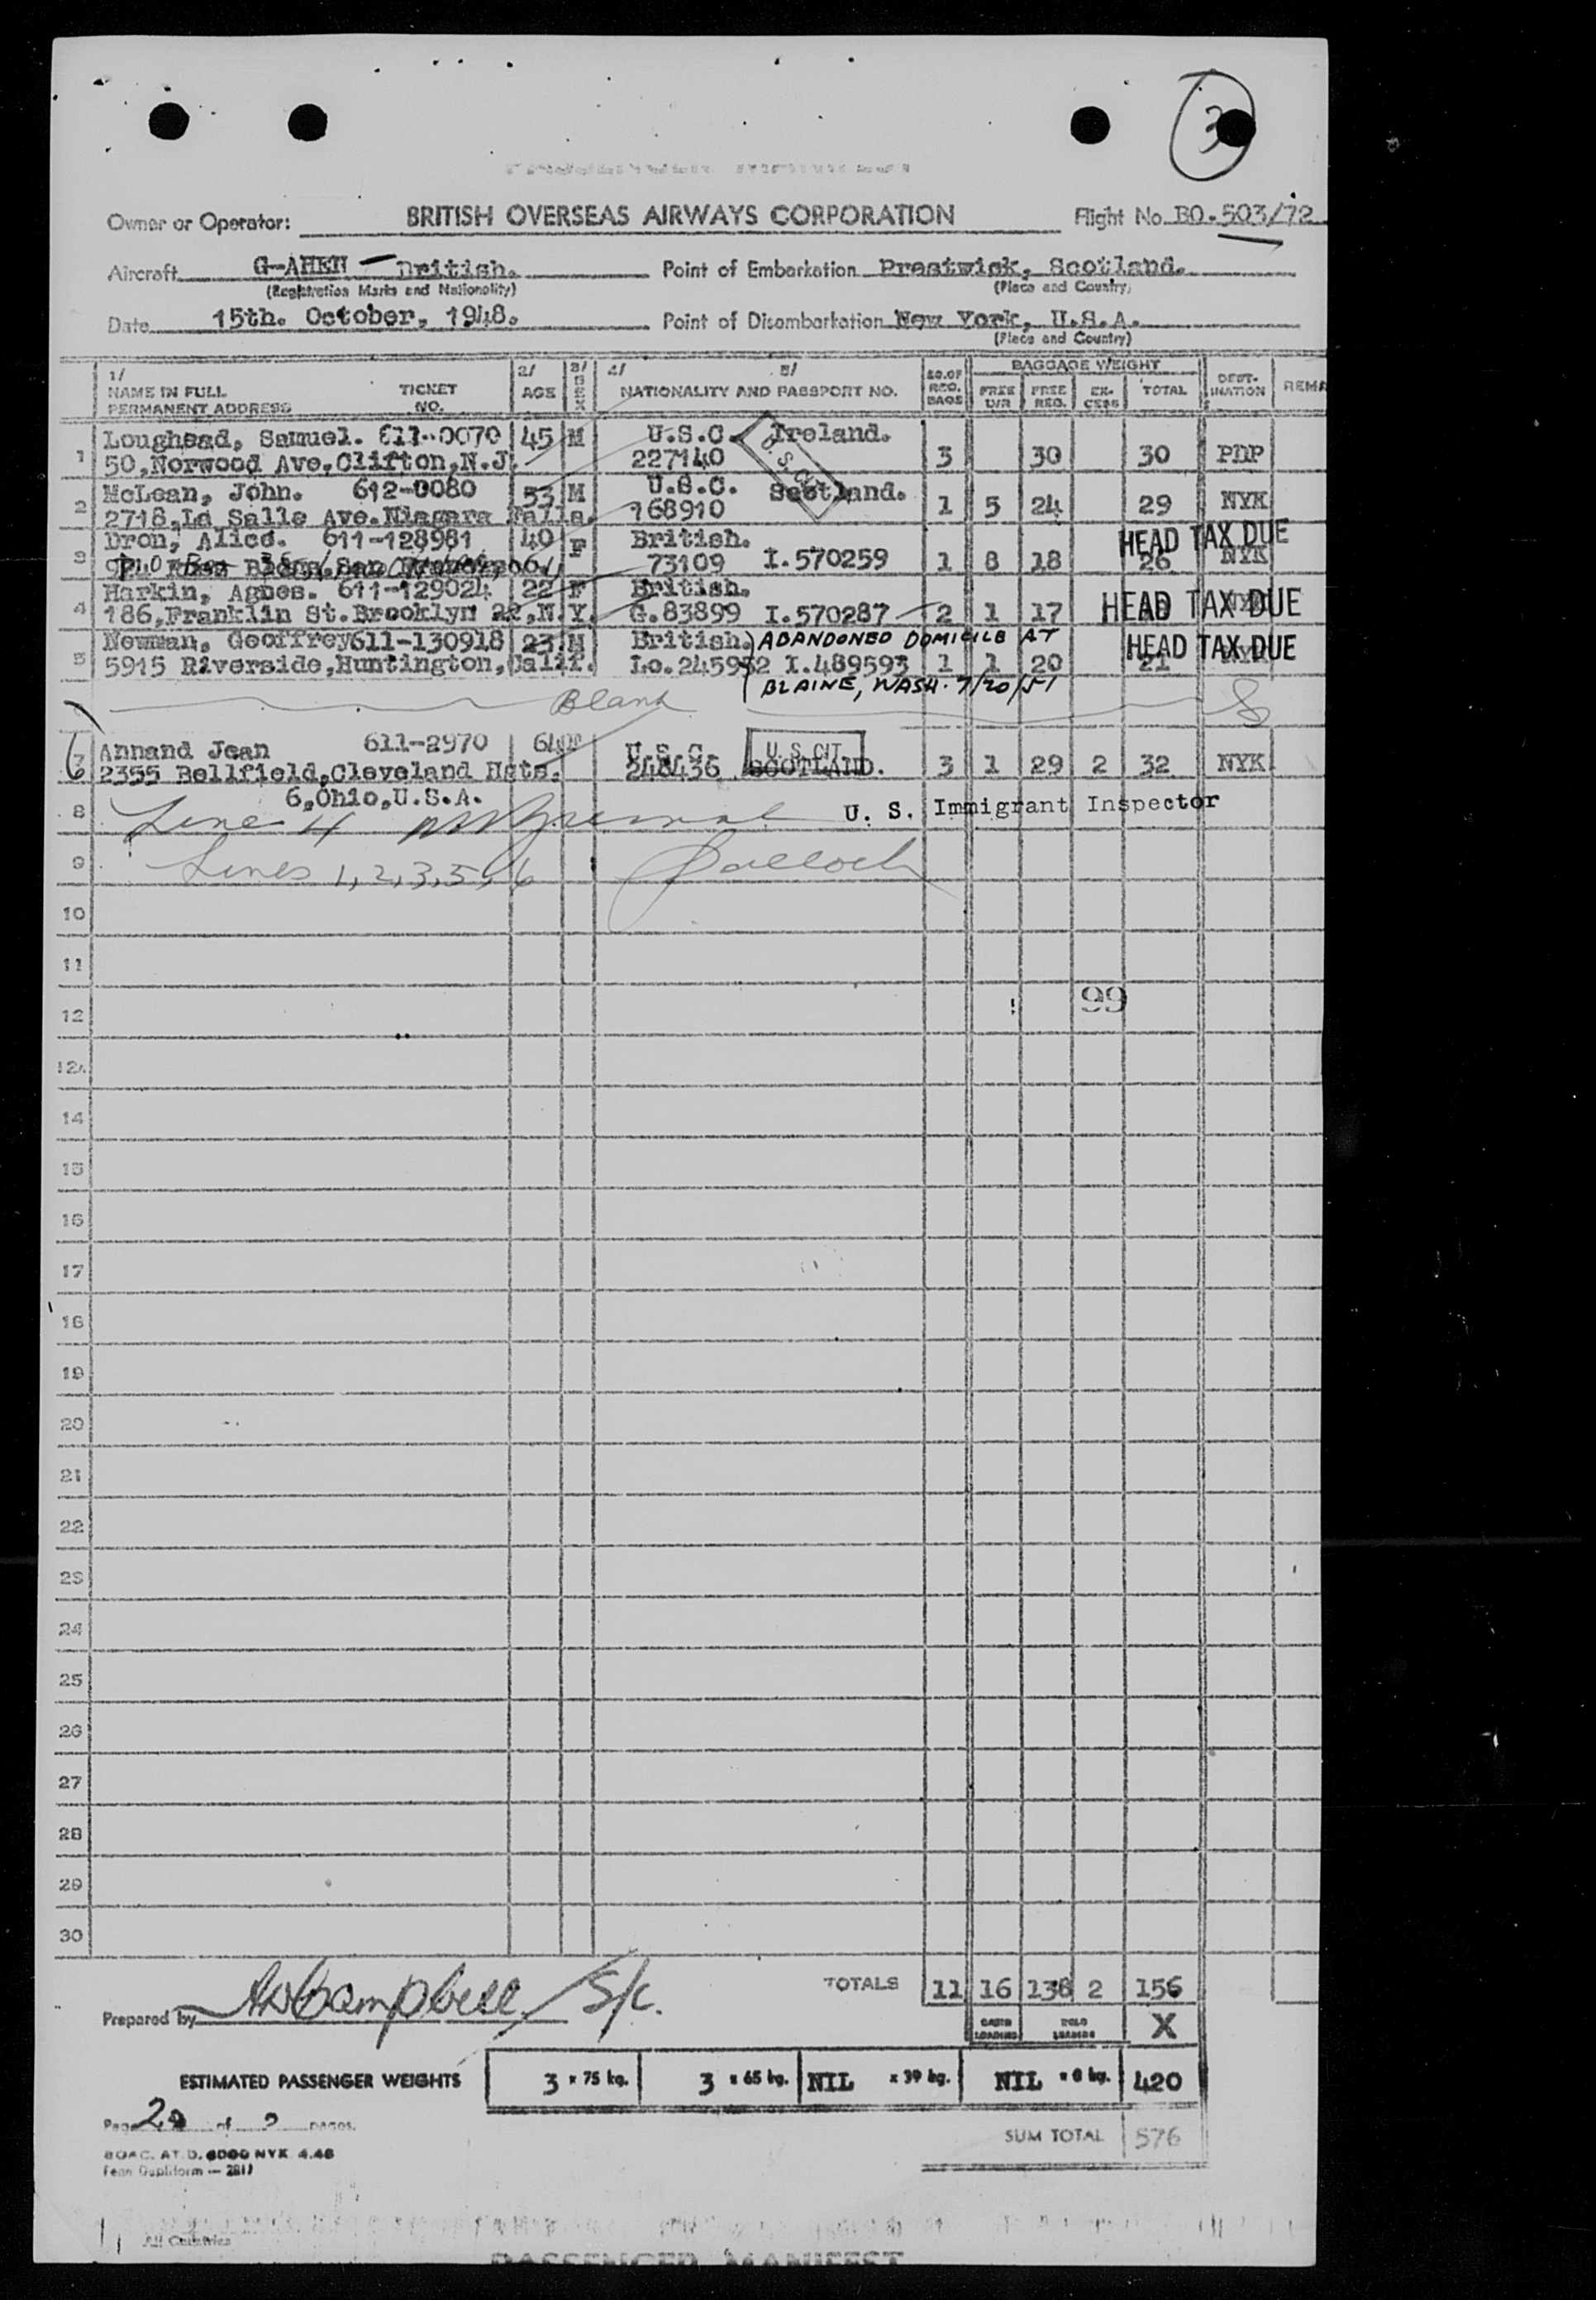 3
Owner or Operator: BRITISH OVERSEAS AIRWAYS CORPORATION Flight No. BO.503/72
Aircraft G-AHEN — British. Point of Embarkation Prestwick, Scotland.
(Registration Marks and Nationality) (Place and Country)
Date 15th. October, 1948. Point of Disembarkation New York, U.S.A.
(Place and Country)
1/ 2/ 3/ 4/ 5/ NO. OF BAGGAGE WEIGHT
NAME IN FULL TICKET AGE SEX NATIONALITY AND PASSPORT NO. REG. FREE FREE EX- TOTAL DEST- REMA
PERMANENT ADDRESS NO. BAGS REG. CESS INATION
1 Loughead, Samuel. 611-0070 45 M U.S.C. Ireland.
50,Norwood Ave,Clifton,N.J. 227140 3 30 30 PDP
2 McLean, John. 612-0080 53 M U.S.C. Scotland.
2718,La Salle Ave.Niagara Falls. 168910 1 5 24 29 NYK
3 Dron, Alice. 611-128981 40 F British. HEAD TAX DUE
73109 I.570259 1 8 18 26 NYK
4 Harkin, Agnes. 611-129024 22 F British.
186,Franklin St.Brooklyn 22,N.Y. G.83899 I.570287 2 1 17 HEAD TAX DUE
5 Newman, Geoffrey 611-130918 23 M British. ABANDONED DOMICILE AT HEAD TAX DUE
5915 Riverside,Huntington,Calif. Lo.245952 I.489593 1 1 20 21 NYK
BLAINE, WASH. 7/20/51
Blank
6 7 Annand Jean 611-2970 64 U.S.C. U.S. CIT.
2355 Bellfield,Cleveland Hgts. 248436 SCOTLAND. 3 1 29 2 32 NYK
6,Ohio,U.S.A.
8 Line 4 U. S. Immigrant Inspector
9 Lines 1,2,3,5,6
10
11
99
12
12A
14
15
16
17
18
19
20
21
22
23
24
25
26
27
28
29
30
TOTALS 11 16 138 2 156
Prepared by Campbell / S/c.
CABIN LOADING HOLD LOADING X
ESTIMATED PASSENGER WEIGHTS 3 x 75 kg. 3 x 65 kg. NIL x 39 kg. NIL x 8 kg. 420
Page 2 of 2 pages.
SUM TOTAL 576
BOAC. AT.D. 6000 NYK 4.48
All Countries
PASSENGER MANIFEST